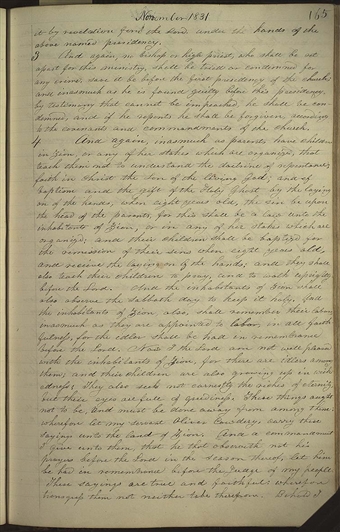 November 1831
165
it by revelation from the Lord under the hands of the
above named presidency.
3 And again, no bishop or high priest, who shall be set
apart for this ministry, shall be tried or condemned for
any crime, save it be before the first presidency of the church;
and inasmuch as he is found guilty before this presidency,
by testimony that cannot be impeached, he shall be con-
demned, and if he repents he shall be forgiven, according
to the covenants and commandments of the church.
4 And again, inasmuch as parents have children
in Zion, or any of her stakes which are organized, that
teach them not to understand the doctrine of repentance;
faith in Christ the Son of the living God; and of
baptism and the gift of the Holy Ghost by the laying
on of the hands, when eight years old, the sin be upon
the head of the parents, for this shall be a law unto the
inhabitants of Zion, or in any of her stakes which are
organized; and their children shall be baptized for
the remission of their sins when eight years old,
and receive the laying on of the hands; and they shall
also teach their children to pray, and to walk uprightly
before the Lord. And the inhabitants of Zion shall
also observe the sabbath day to keep it holy. And
the inhabitants of Zion, also, shall remember their labors,
inasmuch as they are appointed to labor, in all faith-
fulness, for the idler shall be had in remembrance
before the Lord. Now I the Lord am not well pleased
with the inhabitants of Zion, for there are idlers among
them; and their children are also growing up in wick-
edness; They also seek not earnestly the riches of eternity,
but their eyes are full of greediness. These things ought
not to be, and must be done away from among them:
wherefore let my servant Oliver Cowdery carry these
sayings unto the land of Zion. And a commandment
I give unto them, that he that observeth not his
prayers before the Lord in the season thereof, let him
be had in remembrance before the Judge of my people.
These sayings are true and faithful; wherefore
transgress them not neither take therefrom. Behold I